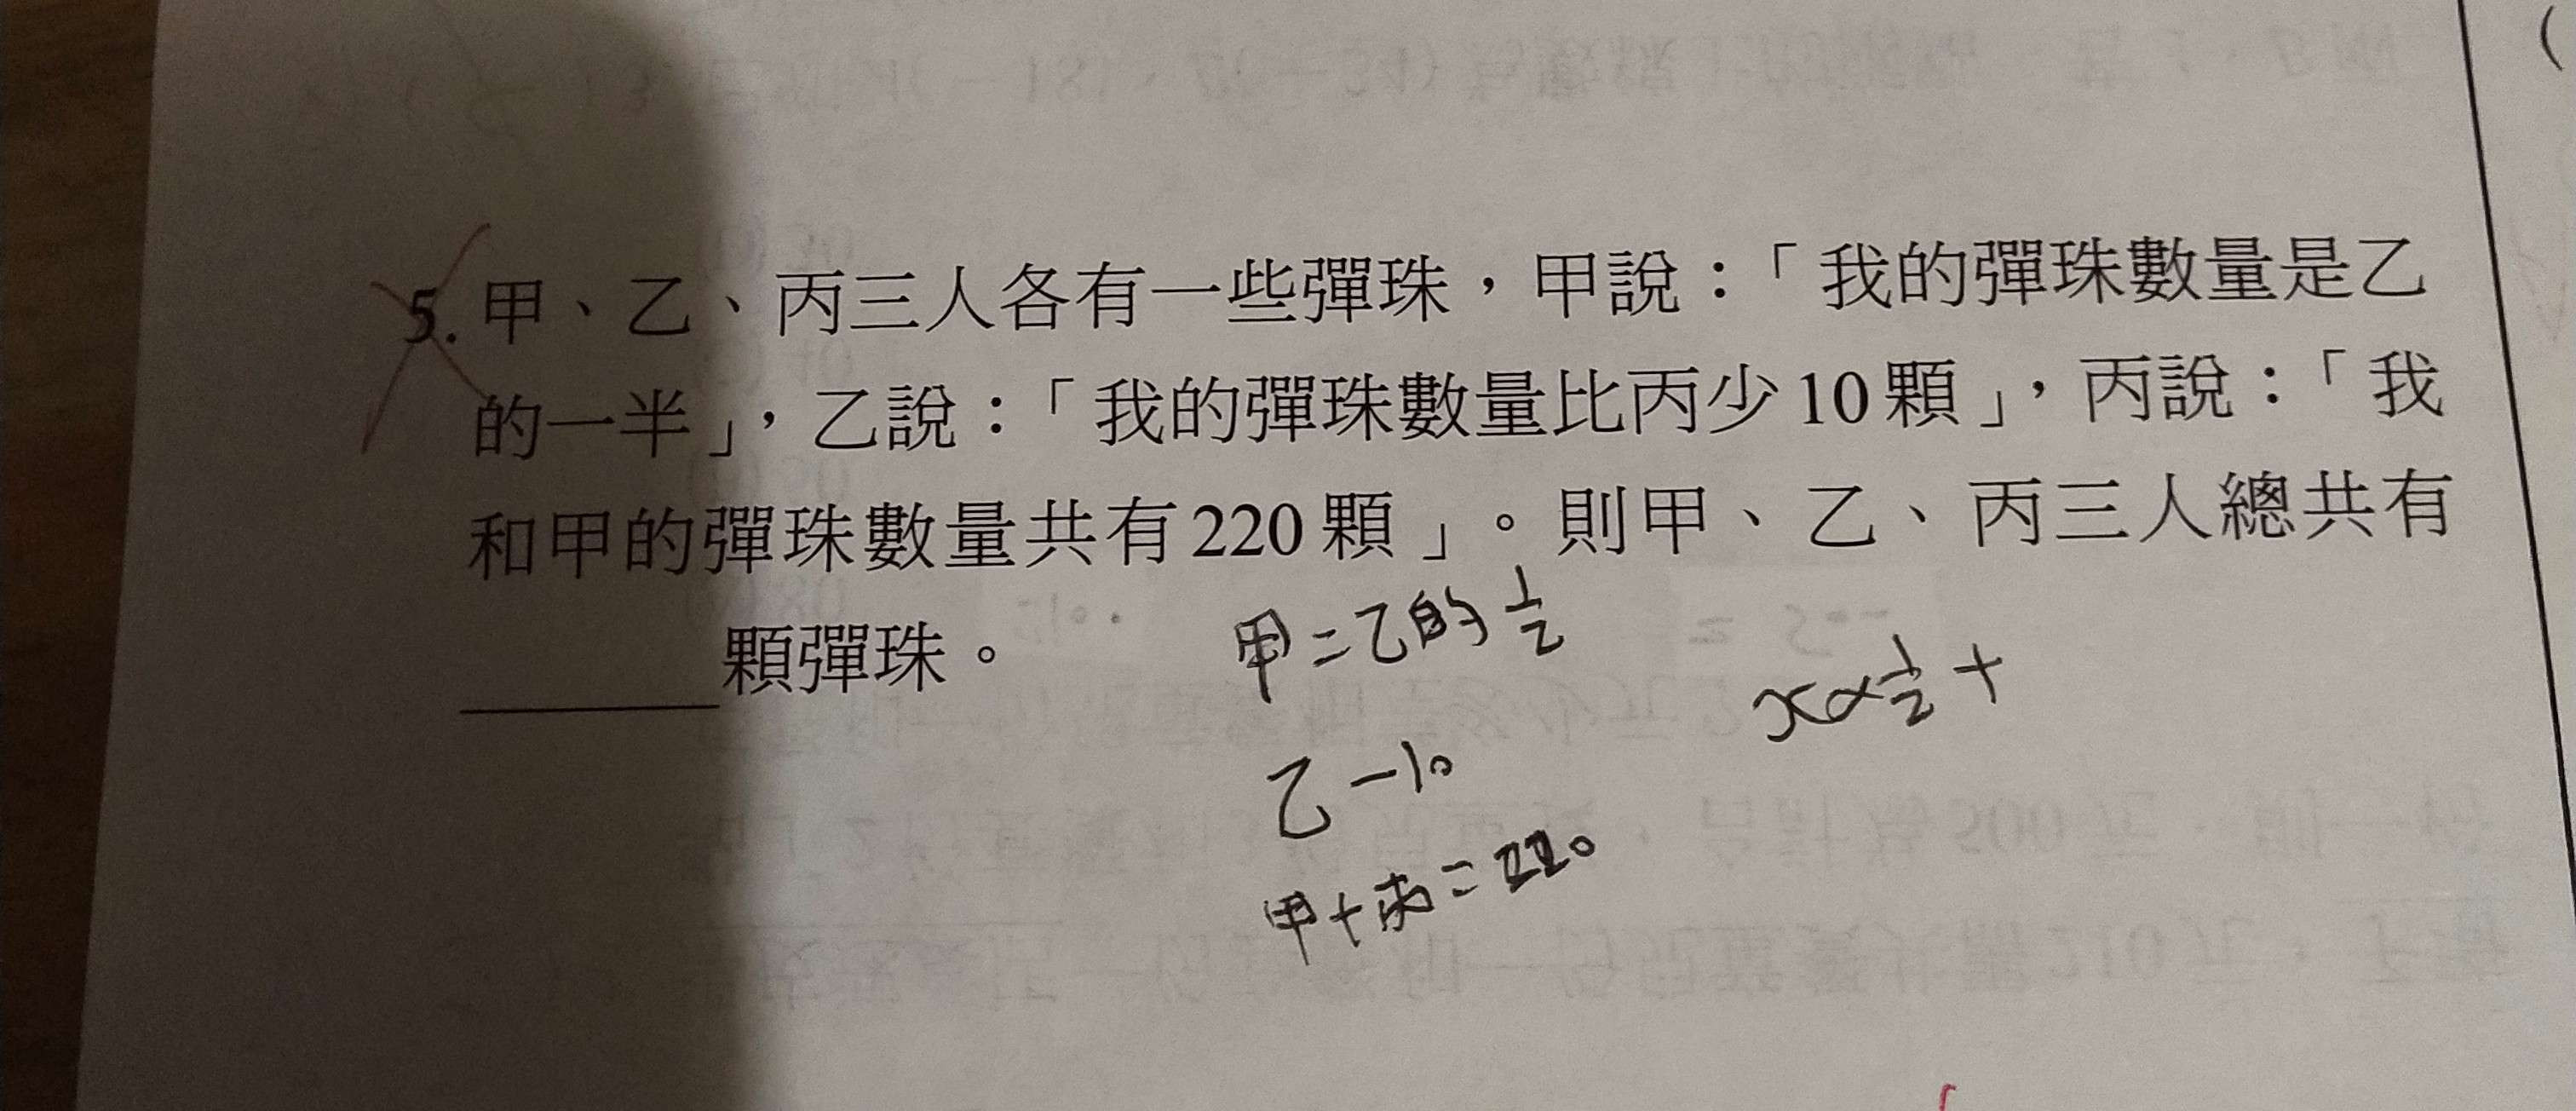 5. 甲、乙、丙三人各有一些彈珠,甲說:「我的彈珠數量是乙
的一半」,乙說:「我的彈珠數量比丙少10顆」,丙說:「我
和甲的彈珠數量共有220顆」。則甲、乙、丙三人總共有
______顆彈珠。
甲=乙的½
x×½+
乙-10
甲+丙=220